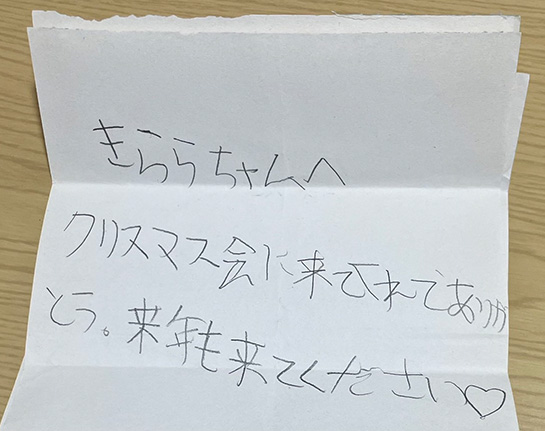 きららちゃんへ
クリスマス会に来てくれてありが
とう。来年も来てください♡